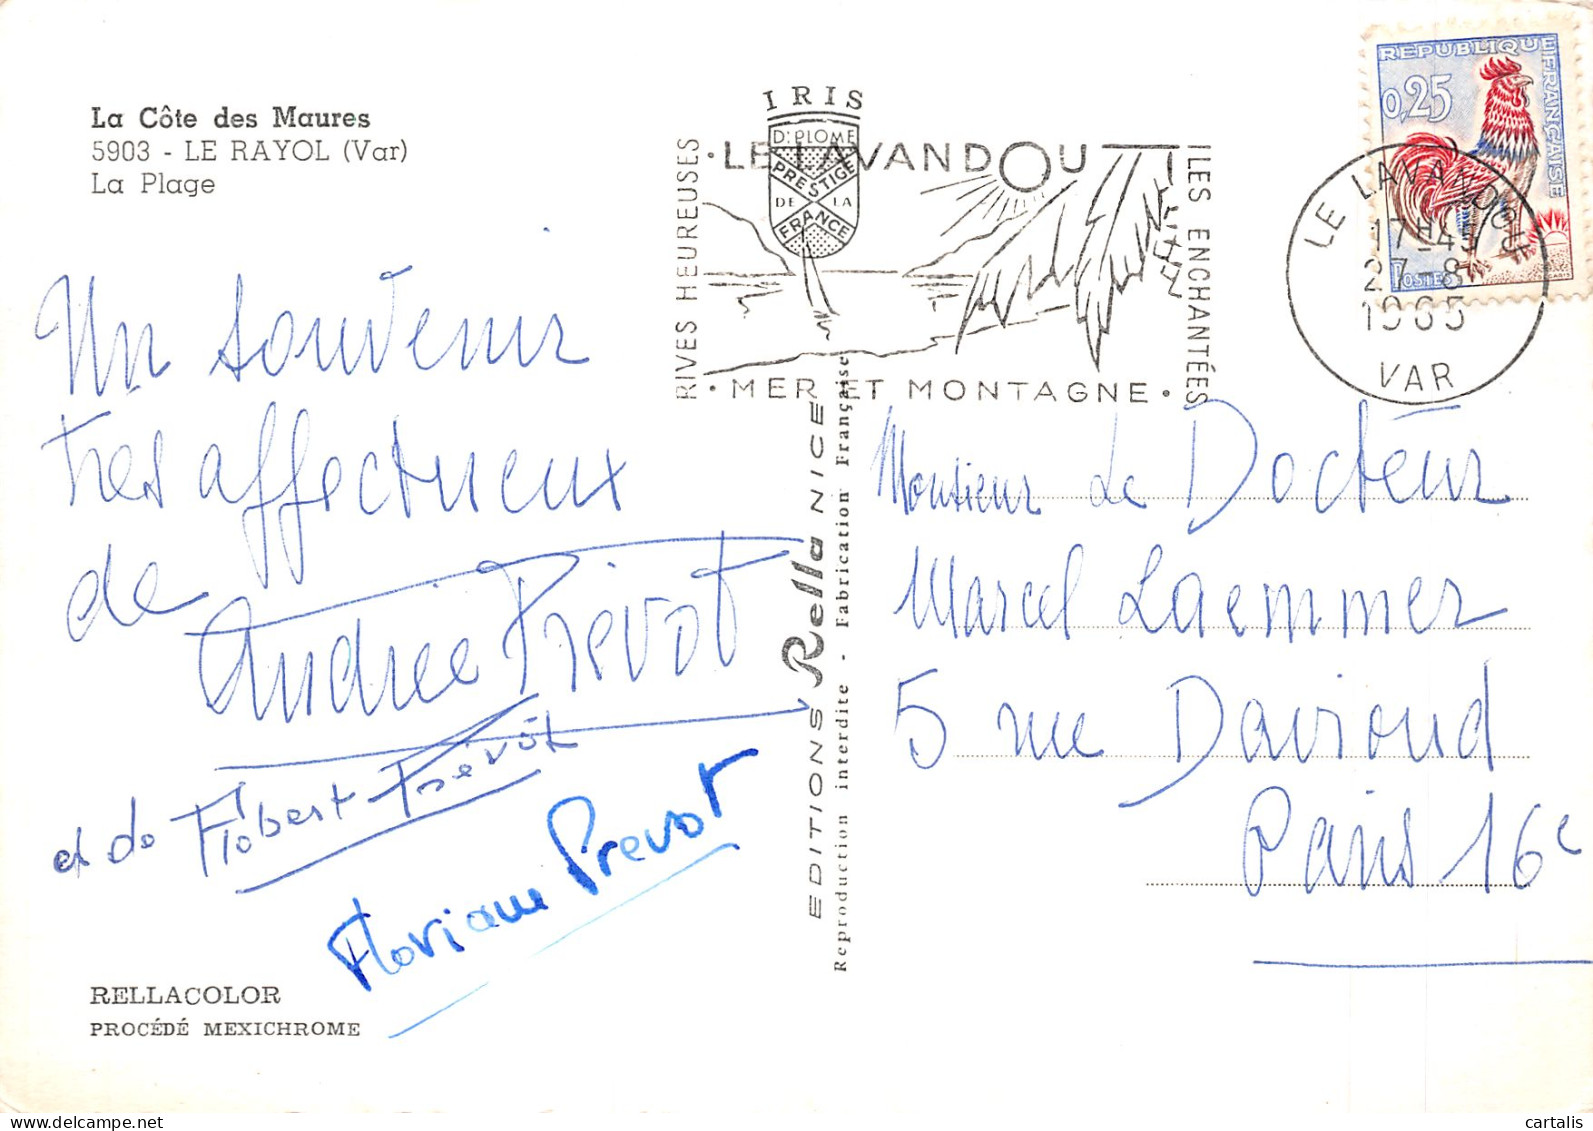 La Côte des Maures
5903 - LE RAYOL (Var)
La Plage
Un souvenir
très affectueux
de
Andrée Prévot
et de Flobert Prévôt
Floriane Prevot
RELLACOLOR
PROCÉDÉ MEXICHROME
EDITIONS Rella NICE
Reproduction interdite - Fabrication Française
IRIS
DIPLOME
PRESTIGE
DE LA
FRANCE
RIVES HEUREUSES
• LE LAVANDOU
ILES ENCHANTÉES
• MER ET MONTAGNE •
REPUBLIQUE FRANÇAISE
0,25
POSTES
LE LAVANDOU
17H45
27-8
1965
VAR
Monsieur Le Docteur
Marcel Laemmer
5 rue Davioud
Paris 16e
cartalis